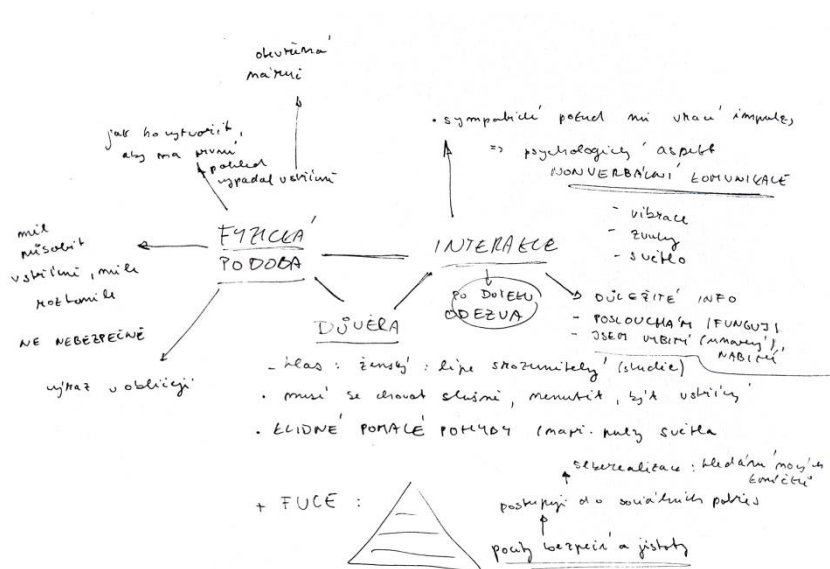 otevřená
náruč
jak ho vytvořit,
aby na první
pohled
vypadal vstřícně
měl
působit
vstřícně, mile
roztomile
NE NEBEZPEČNĚ
výraz v obličeji
FYZICKÁ
PODOBA
DŮVĚRA
INTERAKCE
• sympatické pokud mi vrací impulz,
=> psychologický aspekt
NONVERBÁLNÍ KOMUNIKACE
- vibrace
- zvuky
- světlo
PO DOTEKU
ODEZVA
DŮLEŽITÉ INFO
- POSLOUCHÁM (FUNGUJI)
- JSEM VYBITÝ (unavený),
NABITÝ
- hlas : ženský : lépe srozumitelný (studie)
• musí se chovat slušně, nenutit, být vstřícný
• KLIDNÉ POMALÉ POHYBY (např. pulz světla
+ FUCE :
seberealizace : hledání nových
koníčků
postupuji do sociálních potřeb
pocity bezpečí a jistoty